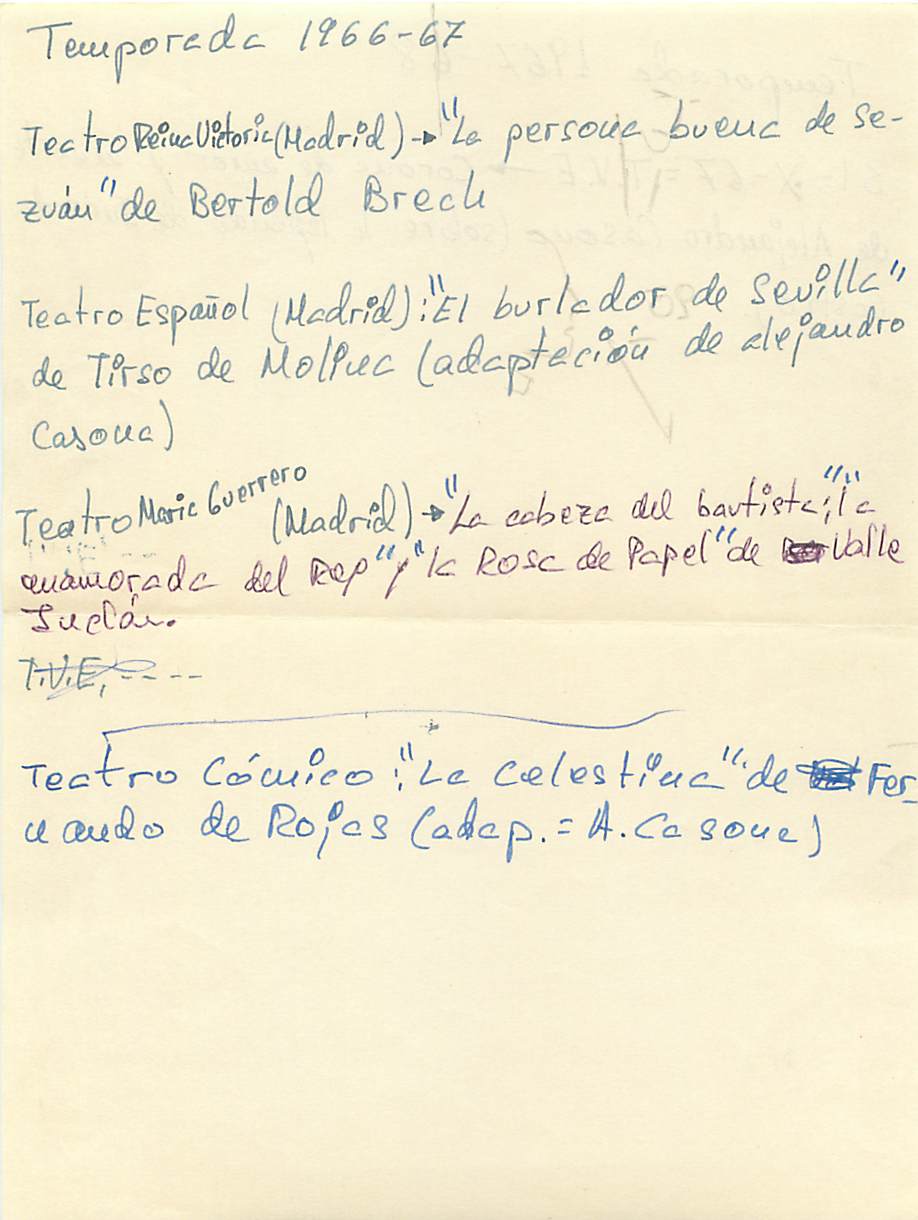 Temporada 1966-67
Teatro Reina Victoria (Madrid) → "La persona buena de Se-
zuán" de Bertold Brech
Teatro Español (Madrid): "El burlador de Sevilla"
de Tirso de Molina (adaptación de alejandro
Casona)
Teatro Maria Guerrero (Madrid) → "La cabeza del bautista", "la
enamorada del Rey" y "la Rosa de Papel" de Valle
Inclán.
T.V.E, ----
Teatro Cómico: "La Celestina" de Fer-
nando de Rojas (adap. = A. Casona)